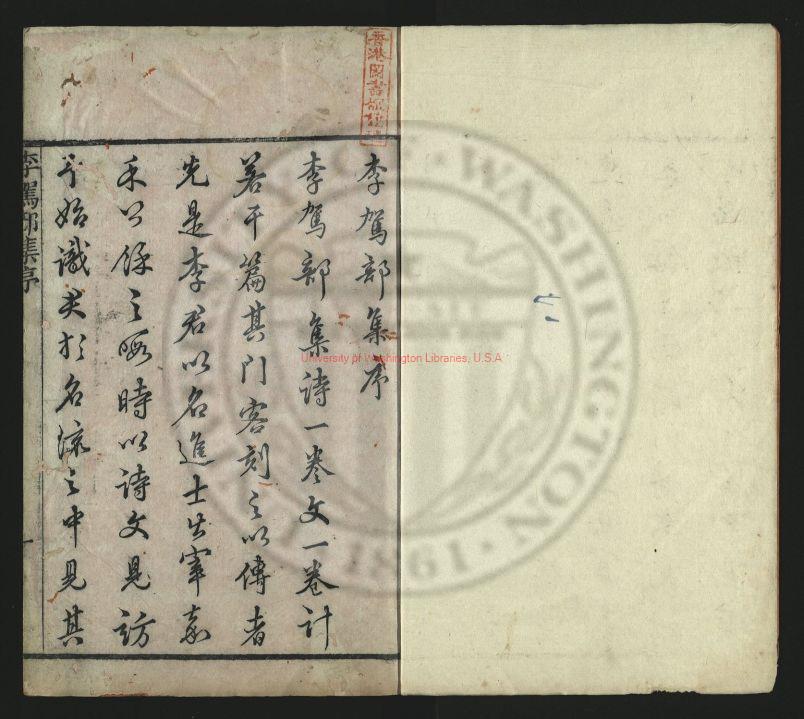 李駕部集序
李駕部集詩一卷文一卷計
若干篇其門客刻之以傳者
先是李君以名進士出宰嘉
禾公餘之暇時以詩文見訪
予始識夫於名流之中見其
李駕部集序
一
香港圖書
University of Washington Libraries, U.S.A
WASHINGTON
1861